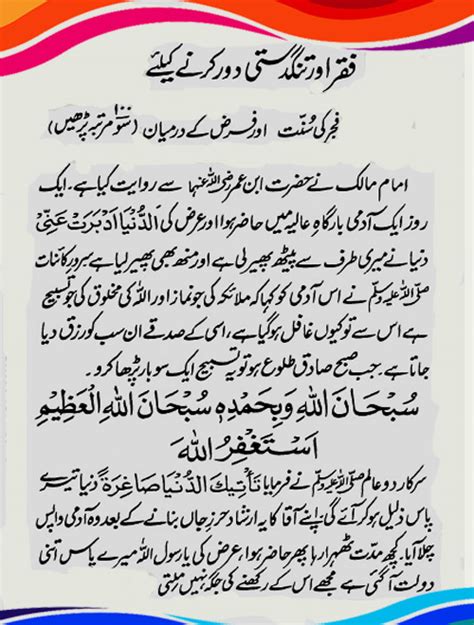 فقر اور تنگدستی دور کرنے کیلئے
فجر کی سُنّت اور فرض کے درمیان (۱۰۰ سَو مرتبہ پڑھیں)
امام مالک نے حضرت ابن عمر رضی اللہ عنہما سے روایت کیا ہے۔ ایک
روز ایک آدمی بارگاہِ عالیہ میں حاضر ہوا اور عرض کی اَلدُّنْيَا اَدْبَرَتْ عَنِّیْ
دنیا نے میری طرف سے پیٹھ پھیر لی ہے اور منھ بھی پھیر لیا ہے سرورِ کائنات
صلی اللہ علیہ وسلم نے اس آدمی کو کہا کہ ملائکہ کی جو نماز اور اللہ کی مخلوق کی جو تسبیح
ہے اس سے تو کیوں غافل ہو گیا ہے، اسی کے صدقے ان سب کو رزق دیا
جاتا ہے۔ جب صبح صادق طلوع ہو تو یہ تسبیح ایک سو بار پڑھا کرو۔
سُبْحَانَ اللهِ وَبِحَمْدِهٖ سُبْحَانَ اللهِ الْعَظِيْمِ
اَسْتَغْفِرُ اللهَ
سرکار دو عالم صلی اللہ علیہ وسلم نے فرمایا تَأْتِيْكَ الدُّنْيَا صَاغِرَةً دنیا تیرے
پاس ذلیل ہو کر آئے گی اپنے آقا کا یہ ارشاد حرزِ جاں بنانے کے بعد وہ آدمی واپس
چلا آیا۔ کچھ مدت ٹھہرا رہا پھر حاضر ہوا، عرض کی یا رسول اللہ میرے پاس اتنی
دولت آ گئی ہے مجھے اس کے رکھنے کی جگہ نہیں ملتی